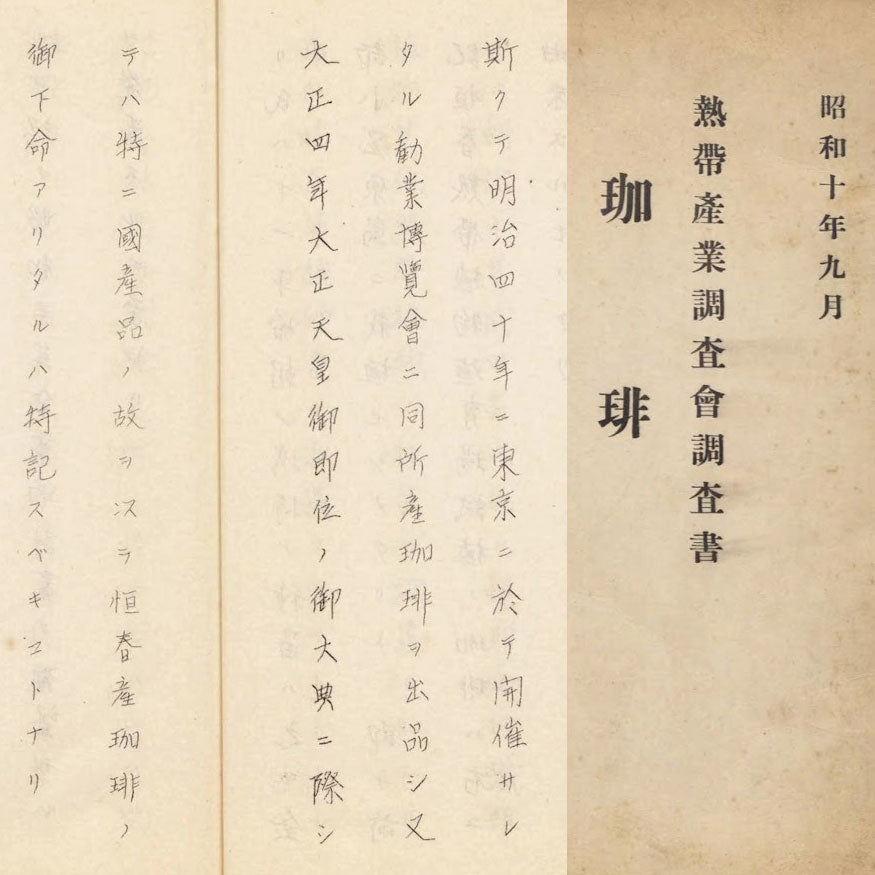 昭和十年九月
熱帶產業調査會調査書
珈琲
斯クテ明治四十年ニ東京ニ於テ開催サレ
タル勸業博覽會ニ同所產珈琲ヲ出品シ又
大正四年大正天皇御即位ノ御大典ニ際シ
テハ特ニ國產品ノ故ヲ以テ恒春產珈琲ノ
御下命アリタルハ特記スベキコトナリ